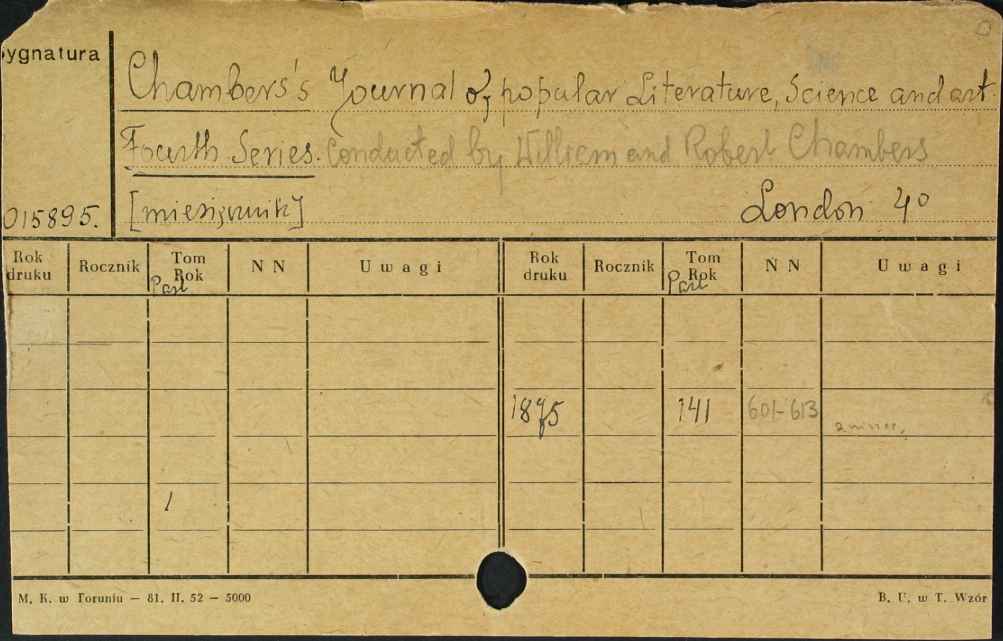 ygnatura
Chambers's Journal of popular Literature, Science and art.
Fourth Series. Conducted by William and Robert Chambers
015895. [miesięcznik] London 4°
Rok druku Rocznik Tom Rok N N Uwagi Rok druku Rocznik Tom Rok N N Uwagi
Part Part
1875 141 601-613
1
M. K. w Toruniu — 81. II. 52 — 5000 B. U. w T. Wzór